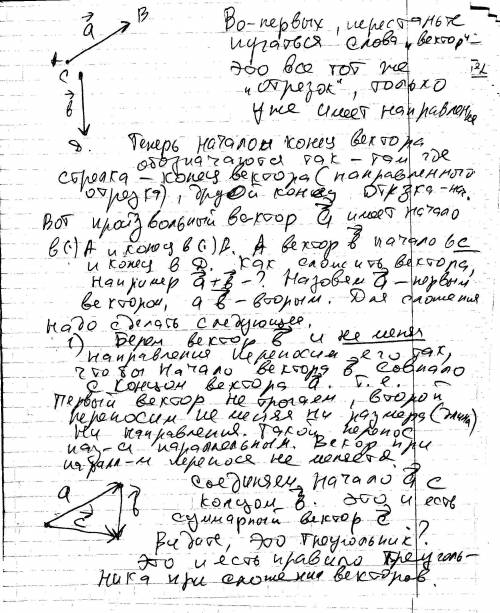 a B
Во-первых, перестаньте
A пугаться слова „вектор"-
C это все тот же
b „отрезок", только
уже имеет направление
D. Теперь начало и конец вектора
обозначаются так - там где
стрелка - конец вектора (направленного
отрезка), другой конец отрезка - на.
Вот произвольный вектор a имеет начало
в (·) A и конец в (·) B. А вектор b начало в C
и конец в D. Как сложить вектора,
например a+b -? Назовем a - первый
вектором, а b - вторым. Для сложения
надо сделать следующее.
1) Берем вектор b и не меняя
направления переносим его так,
чтобы начало вектора b совпало
с концом вектора a. Т.е.
первый вектор не трогаем, второй
переносим не меняя ни размера (длина)
ни направления. Такой перенос
наз-ся параллельным. Вектор при
паралл-м переносе не меняется.
a b c
Соединяем начало a с
концом b. Это и есть
суммарный вектор c
Видите, это треугольник?
Это и есть правило треуголь-
ника при сложении векторов.